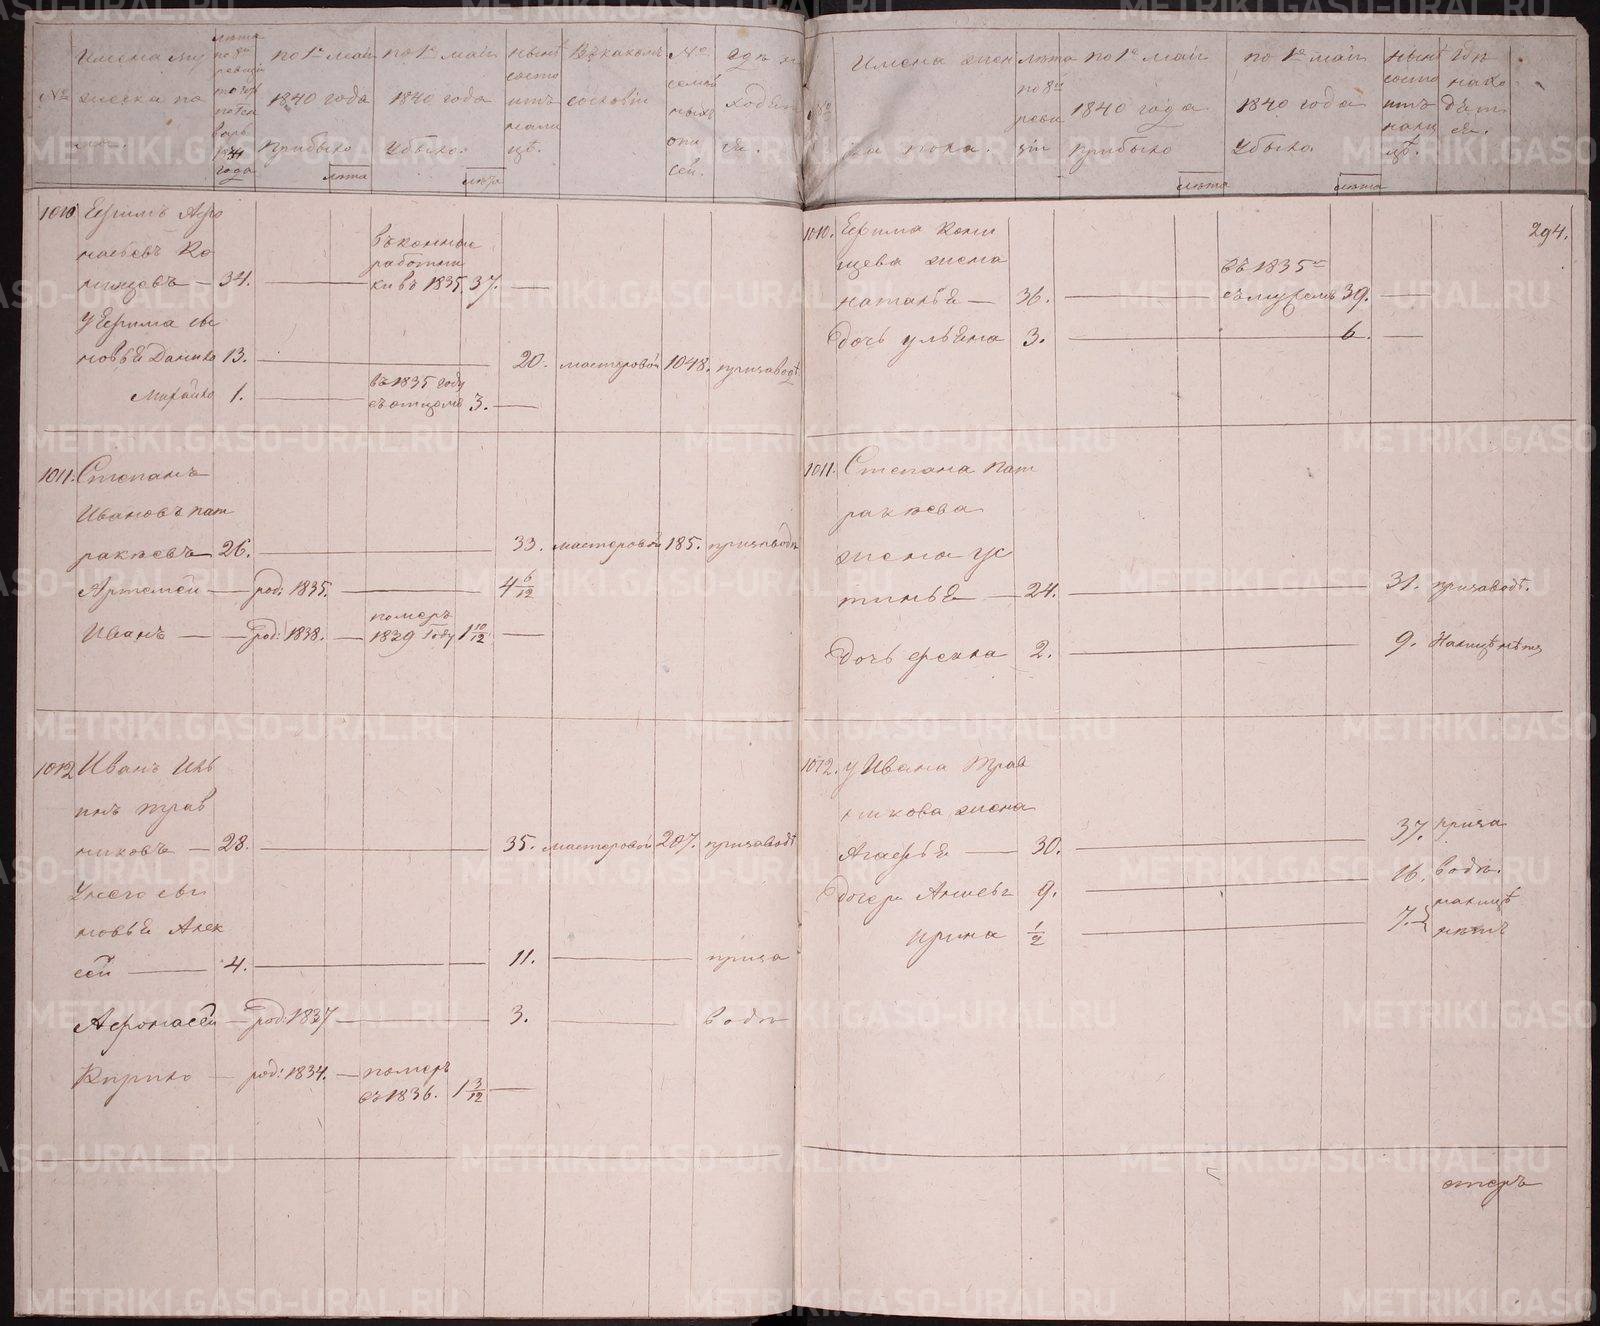 №
Имена му
жеска по
ла.
лѣта
по 8й
ревизiи
по 1 Ген
варь
1834
года
по 1е маiя
1840 года
Прибыло
лѣта
по 1е маiя
1840 года
Убыло.
лѣта
нынѣ
состо
итъ
нали
цѣ.
Въ какомъ
сословiи
№
семей
ныхъ
спи
сей.
Гдѣ на
ходит
ся.
1010 Ефимъ Афо
насьевъ Ко
нищевъ — 34.
въ конные
работни
ки въ 1835 37. —
У Ефима сы
новья Данило 13. 20. мастеровой 1048. призаводѣ
Михайло 1. въ 1835 году
съ отцомъ 3. —
1011. Степанъ
Ивановъ Пат
ракѣевъ 26. 33. мастеровой 185. призаводѣ
Артемей — род: 1835. — 4 6/12
Иванъ — род: 1838. — померъ
1839 году 1 10/12 —
1012 Иванъ Иль
инъ Трав
никовъ — 28. 35. мастеровой 207. призаводѣ
У него сы
новья Алек
сей — 4. 11. — приза
Афонасей — род: 1837 — 3. — водѣ
Кирило — род: 1834. — померъ
въ 1836. 1 3/12 —
№
Имена жен
ска пола.
лѣта
по 8й
реви
зiи
по 1е маiя
1840 года
Прибыло
лѣта
по 1е маiя
1840 года
Убыло
лѣта
нынѣ
состо
итъ
нали
цѣ.
Гдѣ
нахо
дит
ся.
294.
1010. Ефима Кони
щева жена
Наталья — 36. въ 1835м
съ мужемъ 39. —
Дочь Ульяна 3. 6. —
1011. Степана Пат
ракѣева
жена Ус
тинья — 24. 31. призаводѣ.
Дочь Фекла 2. 9. Налицѣ нѣтъ
1012. У Ивана Трав
никова жена
Агафья — 30. 37. приза
Дочери Анисья 9. 16. водѣ.
Ирина 1/2 7. налицѣ
нѣтъ